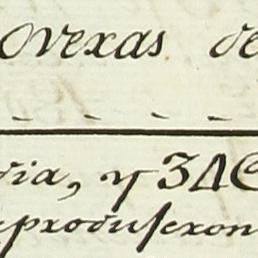 ovexas de
dia, y 340
produseron